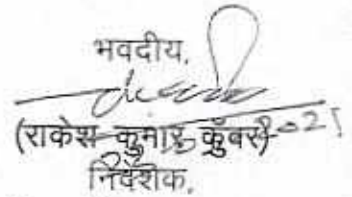 भवदीय,
(राकेश कुमार कुँवर)
निदेशक,